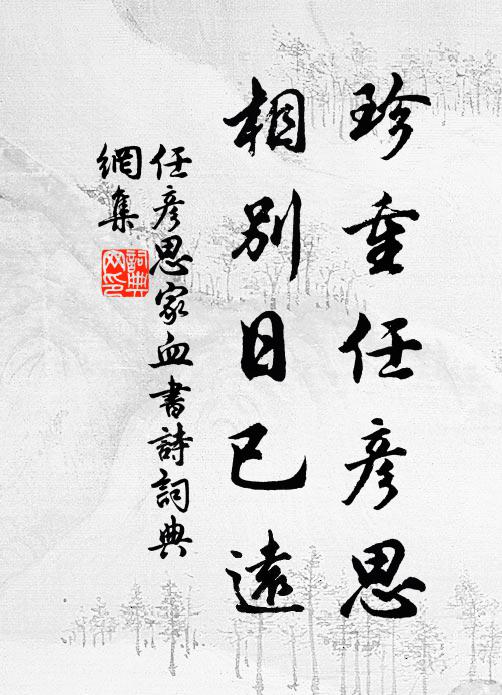 珍重任彥思
相別日已遠
任彥思家血書詩詞典
網集
詞典
网印